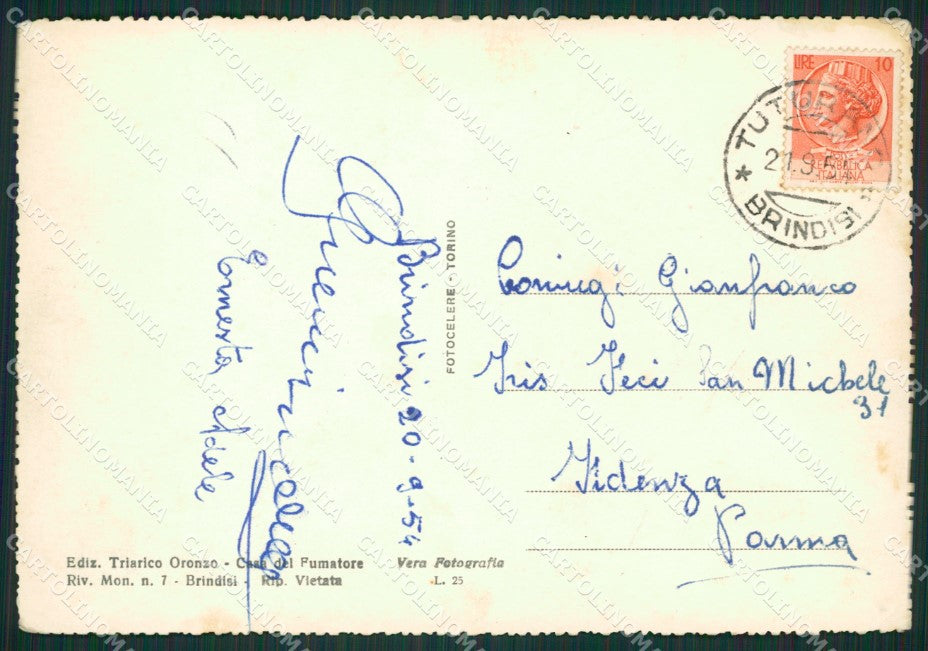 LIRE 10
REPUBBLICA
ITALIANA
* TUTURANO *
21.9.54
BRINDISI
Brindisi 20-9-54
Ernesta Adele
FOTOCELERE - TORINO
Coniugi Gianfranco
Iris Feci San Michele
31
Fidenza
Parma
Ediz. Triarico Oronzo - Casa del Fumatore
Riv. Mon. n. 7 - Brindisi - Rip. Vietata
Vera Fotografia
L. 25
CARTOLINOMANIA